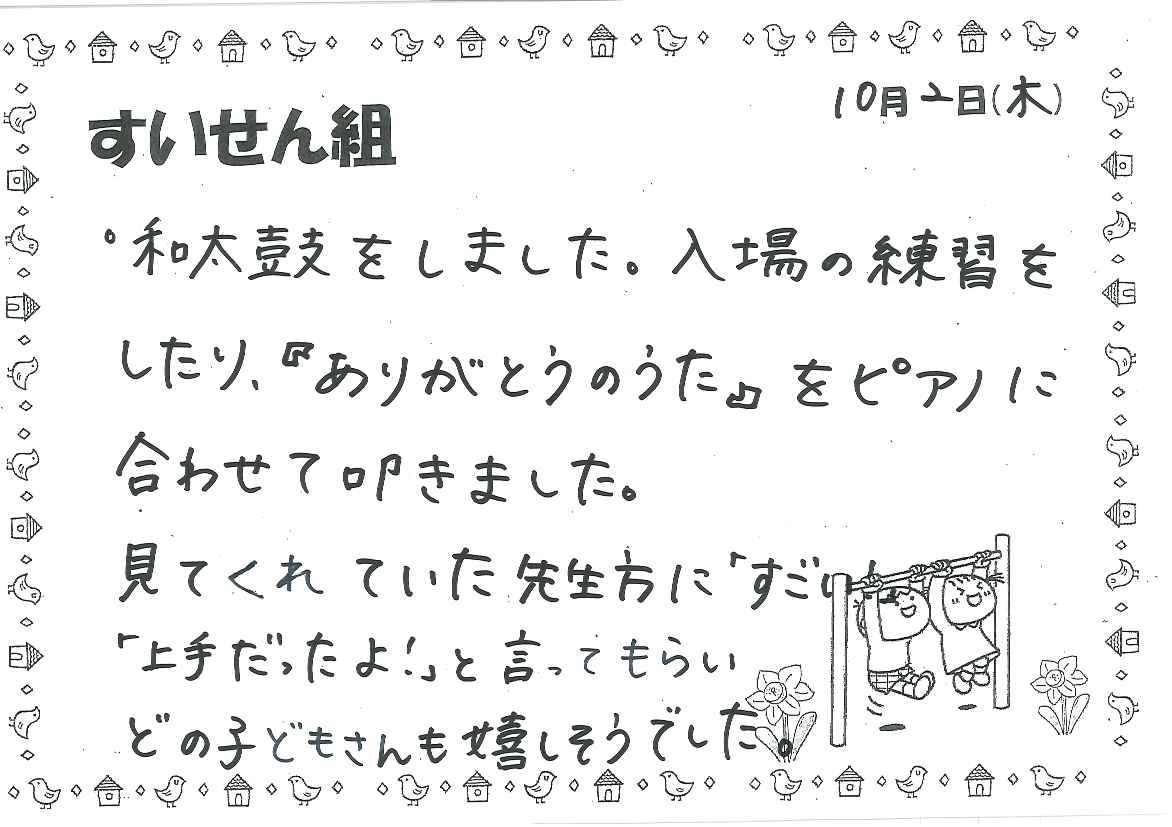 10月2日(木)
すいせん組
°和太鼓をしました。入場の練習を
したり、『ありがとうのうた』をピアノに
合わせて叩きました。
見てくれていた先生方に「すごい
「上手だったよ!」と言ってもらい
どの子どもさんも嬉しそうでした。